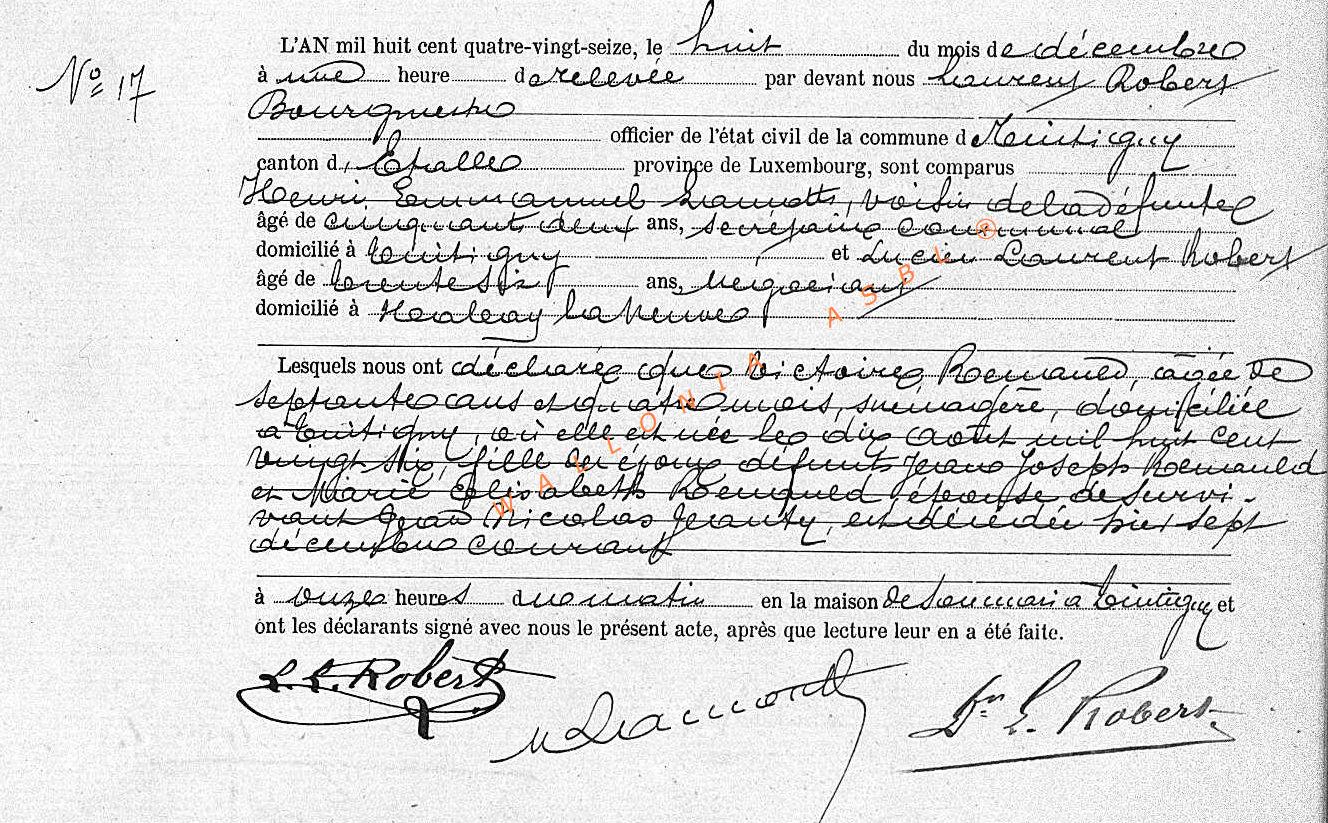 N° 17
L'AN mil huit cent quatre-vingt-seize, le huit du mois de décembre
à une heure de relevée par devant nous Laurent Robert
Bourgmestre
officier de l'état civil de la commune d Tintigny
canton d' Etalle province de Luxembourg, sont comparus
Henri Emmanuel Lamotte, voisin de la défunte
âgé de cinquante deux ans, secrétaire communal
domicilié à Tintigny et Lucien Laurent Robert
âgé de trente six ans, Négociant
domicilié à
Lesquels nous ont déclaré que Victoire Remauld, âgée de
septante ans et quatre mois, ménagère, domiciliée
à Tintigny, où elle est née le dix août mil huit cent
vingt six, fille des époux défunts Jean Joseph Remauld
et Marie Elisabeth épouse de survi-
vant Jean Nicolas Jeanty, est décédée hier sept
décembre courant
à onze heures du matin en la maison de son mari à Tintigny et
ont les déclarants signé avec nous le présent acte, après que lecture leur en a été faite.
L. L. Robert
Lamotte
Dr L. Robert
WALLONIA ASBL ®